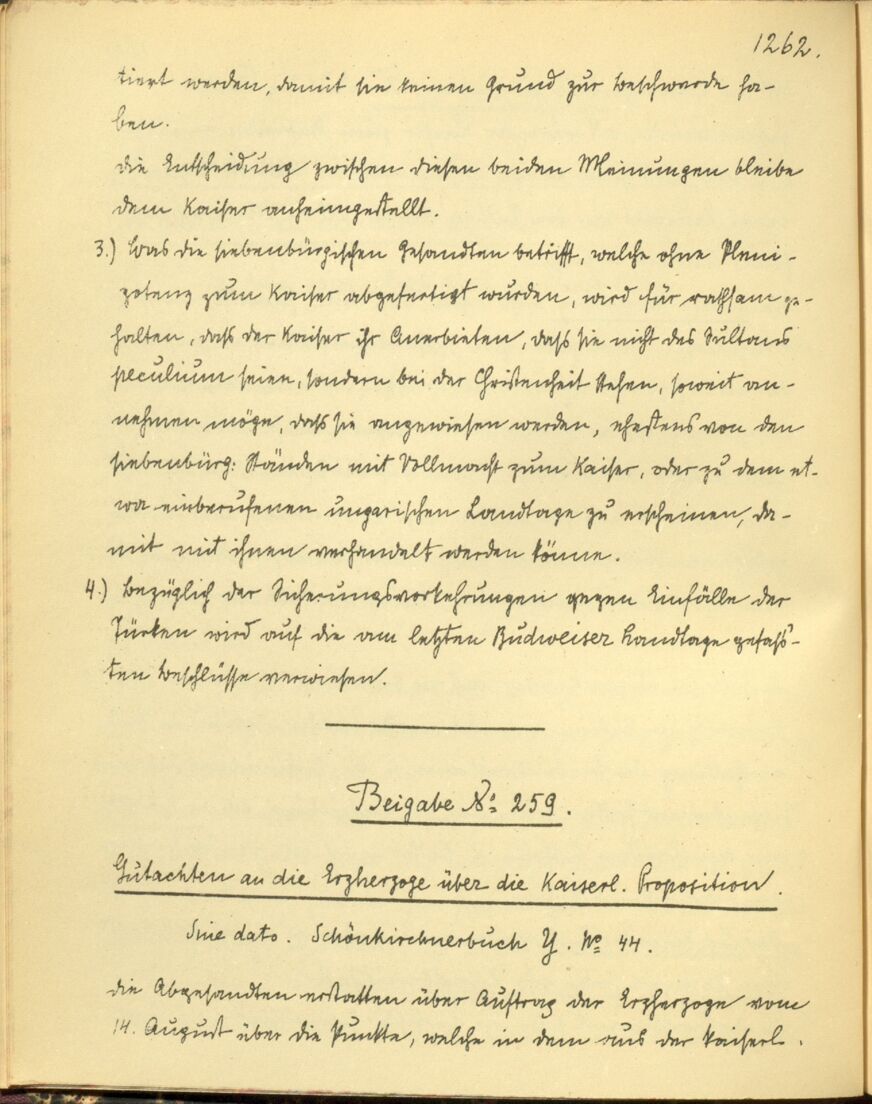 1262.
tiert werden, damit sie keinen Grund zur Beschwerde ha-
ben.
Die Entscheidung zwischen diesen beiden Meinungen bleibe
dem Kaiser anheimgestellt.
3.) Was die siebenbürgischen Gesandten betrifft, welche ohne Pleni-
potenz zum Kaiser abgefertigt wurden, wird für rathsam ge-
halten, daß der Kaiser ihr Anerbieten, daß sie nicht des Sultans
peculium seien, sondern bei der Christenheit stehen, soweit an-
nehmen möge, daß sie angewiesen werden, ehestens von den
siebenbürg: Ständen mit Vollmacht zum Kaiser, oder zu dem et-
wa einberufenen ungarischen Landtage zu erscheinen, da-
mit mit ihnen verhandelt werden könne.
4.) Bezüglich der Sicherungsvorkehrungen gegen Einfälle der
Türken wird auf die am letzten Budweiser Landtage gefaß-
ten Beschlüsse verwiesen.
Beigabe No 259.
Gutachten an die Erzherzoge über die Kaiserl. Proposition.
Sine dato. Schönkirchnerbuch Y. No 44.
Die Abgesandten erstatten über Auftrag der Erzherzoge vom
14. August über die Punkte, welche in dem aus der kaiserl.